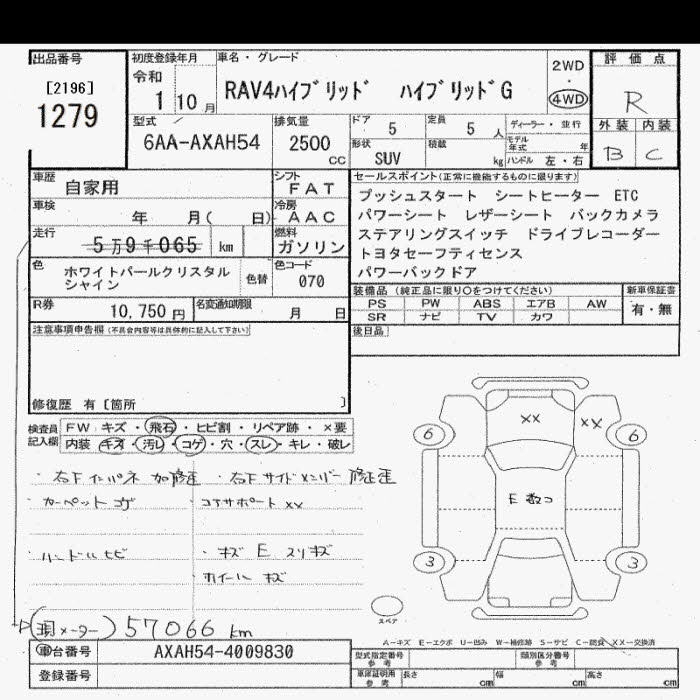 出品番号
[2196]
1279
初度登録年月
令和
1 10 月
車名・グレード
RAV4ハイブリッド ハイブリッドG
2WD
・
4WD
評価点
R
外装 内装
B C
型式
6AA-AXAH54
排気量
2500
cc
ドア
5
定員
5 人
ディーラー・並行
モデル年式 年
形状
SUV
積載
kg
ハンドル 左・右
車歴
自家用
シフト
FAT
車検
年 月( 日)
冷房
AAC
走行
5万9千065 km
燃料
ガソリン
色
ホワイトパールクリスタル
シャイン
色替
色コード
070
R券
10,750 円
名変通知期限
月 日
セールスポイント(正常に機能するものに限ります)
プッシュスタート シートヒーター ETC
パワーシート レザーシート バックカメラ
ステアリングスイッチ ドライブレコーダー
トヨタセーフティセンス
パワーバックドア
装備品 (純正品に限り○をつけてください)
PS PW ABS エアB AW
SR ナビ TV カワ
新車保証書
有・無
後日品
注意事項申告欄(不具合内容等は具体的に記入して下さい)
修復歴 有 [箇所 ]
検査員
記入欄
FW キズ・飛石・ヒビ割・リペア跡・×要
内装 キズ・汚レ・コゲ・穴・スレ・キレ・破レ
・右Fインパネ 加修歪 ・右Fサイドメンバー 修正歪
・カーペット コゲ
コアサポート XX
・ハンドル ヒビ
・キズ E スリキズ
ホイール キズ
XX
XX
6
6
E 数コ
3
3
スペア
(現メーター) 57066 km
A－キズ E－エクボ U－凹み W－補修跡 S－サビ C－腐食 XX－交換済
車台番号
AXAH54-4009830
登録番号
型式指定番号
参考
類別区分番号
参考
車庫証明用
参考
長さ cm
幅 cm
高さ cm